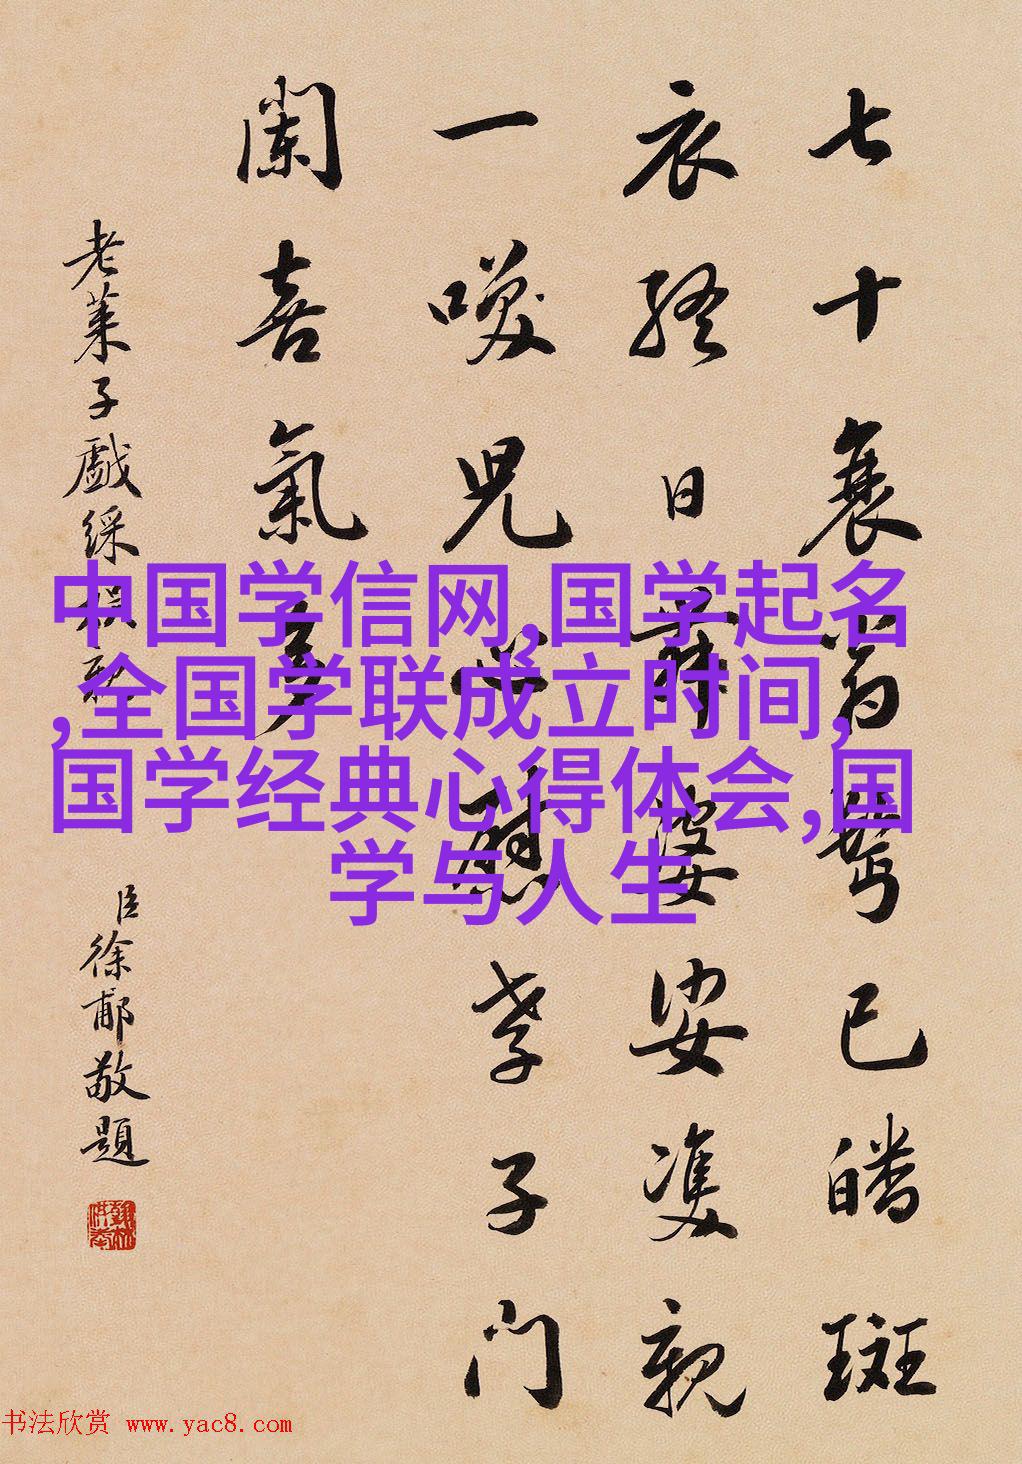 七十衰翁鬢已皤斑
衣終日舞婆娑雙親
一咲兒心慰孝子門
闌喜氣多
老萊子戲綵娛親
臣徐郙敬題
中国学信网,国学起名
,全国学联成立时间,
国学经典心得体会,国
学与人生
书法欣赏 www.yac8.com